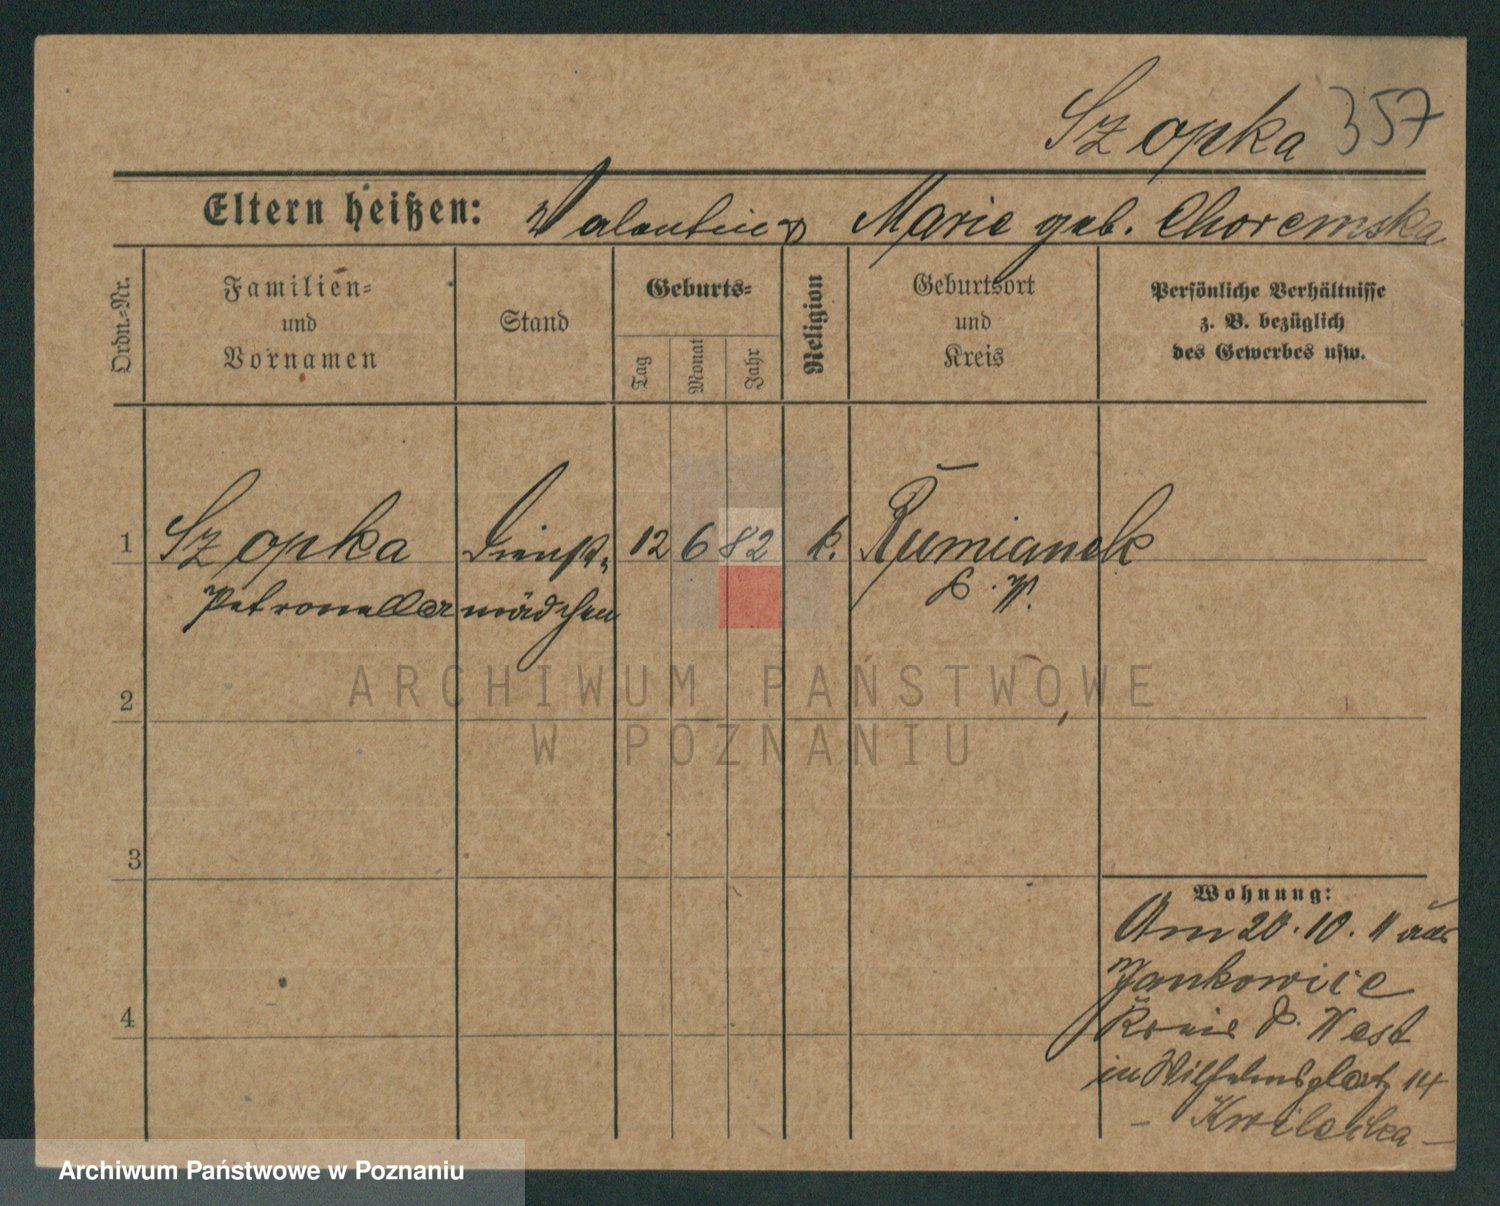 Szopka 357
Eltern heißen: Valentin & Marie geb. Choremska
Ordn.-Nr.
Familien-
und
Vornamen
Stand
Geburts-
Tag
Monat
Jahr
Religion
Geburtsort
und
Kreis
Persönliche Verhältnisse
z. B. bezüglich
des Gewerbes usw.
1 Szopka Dienst- 12 6 82 k. Rumianek
Petronella mädchen P. W.
2
3
4
Wohnung:
Am 20. 10. 11 aus
Jankowice
Kreis P. West
in Wilhelmsplatz 14
- Kwilecka -
ARCHIWUM PAŃSTWOWE
W POZNANIU
Archiwum Państwowe w Poznaniu